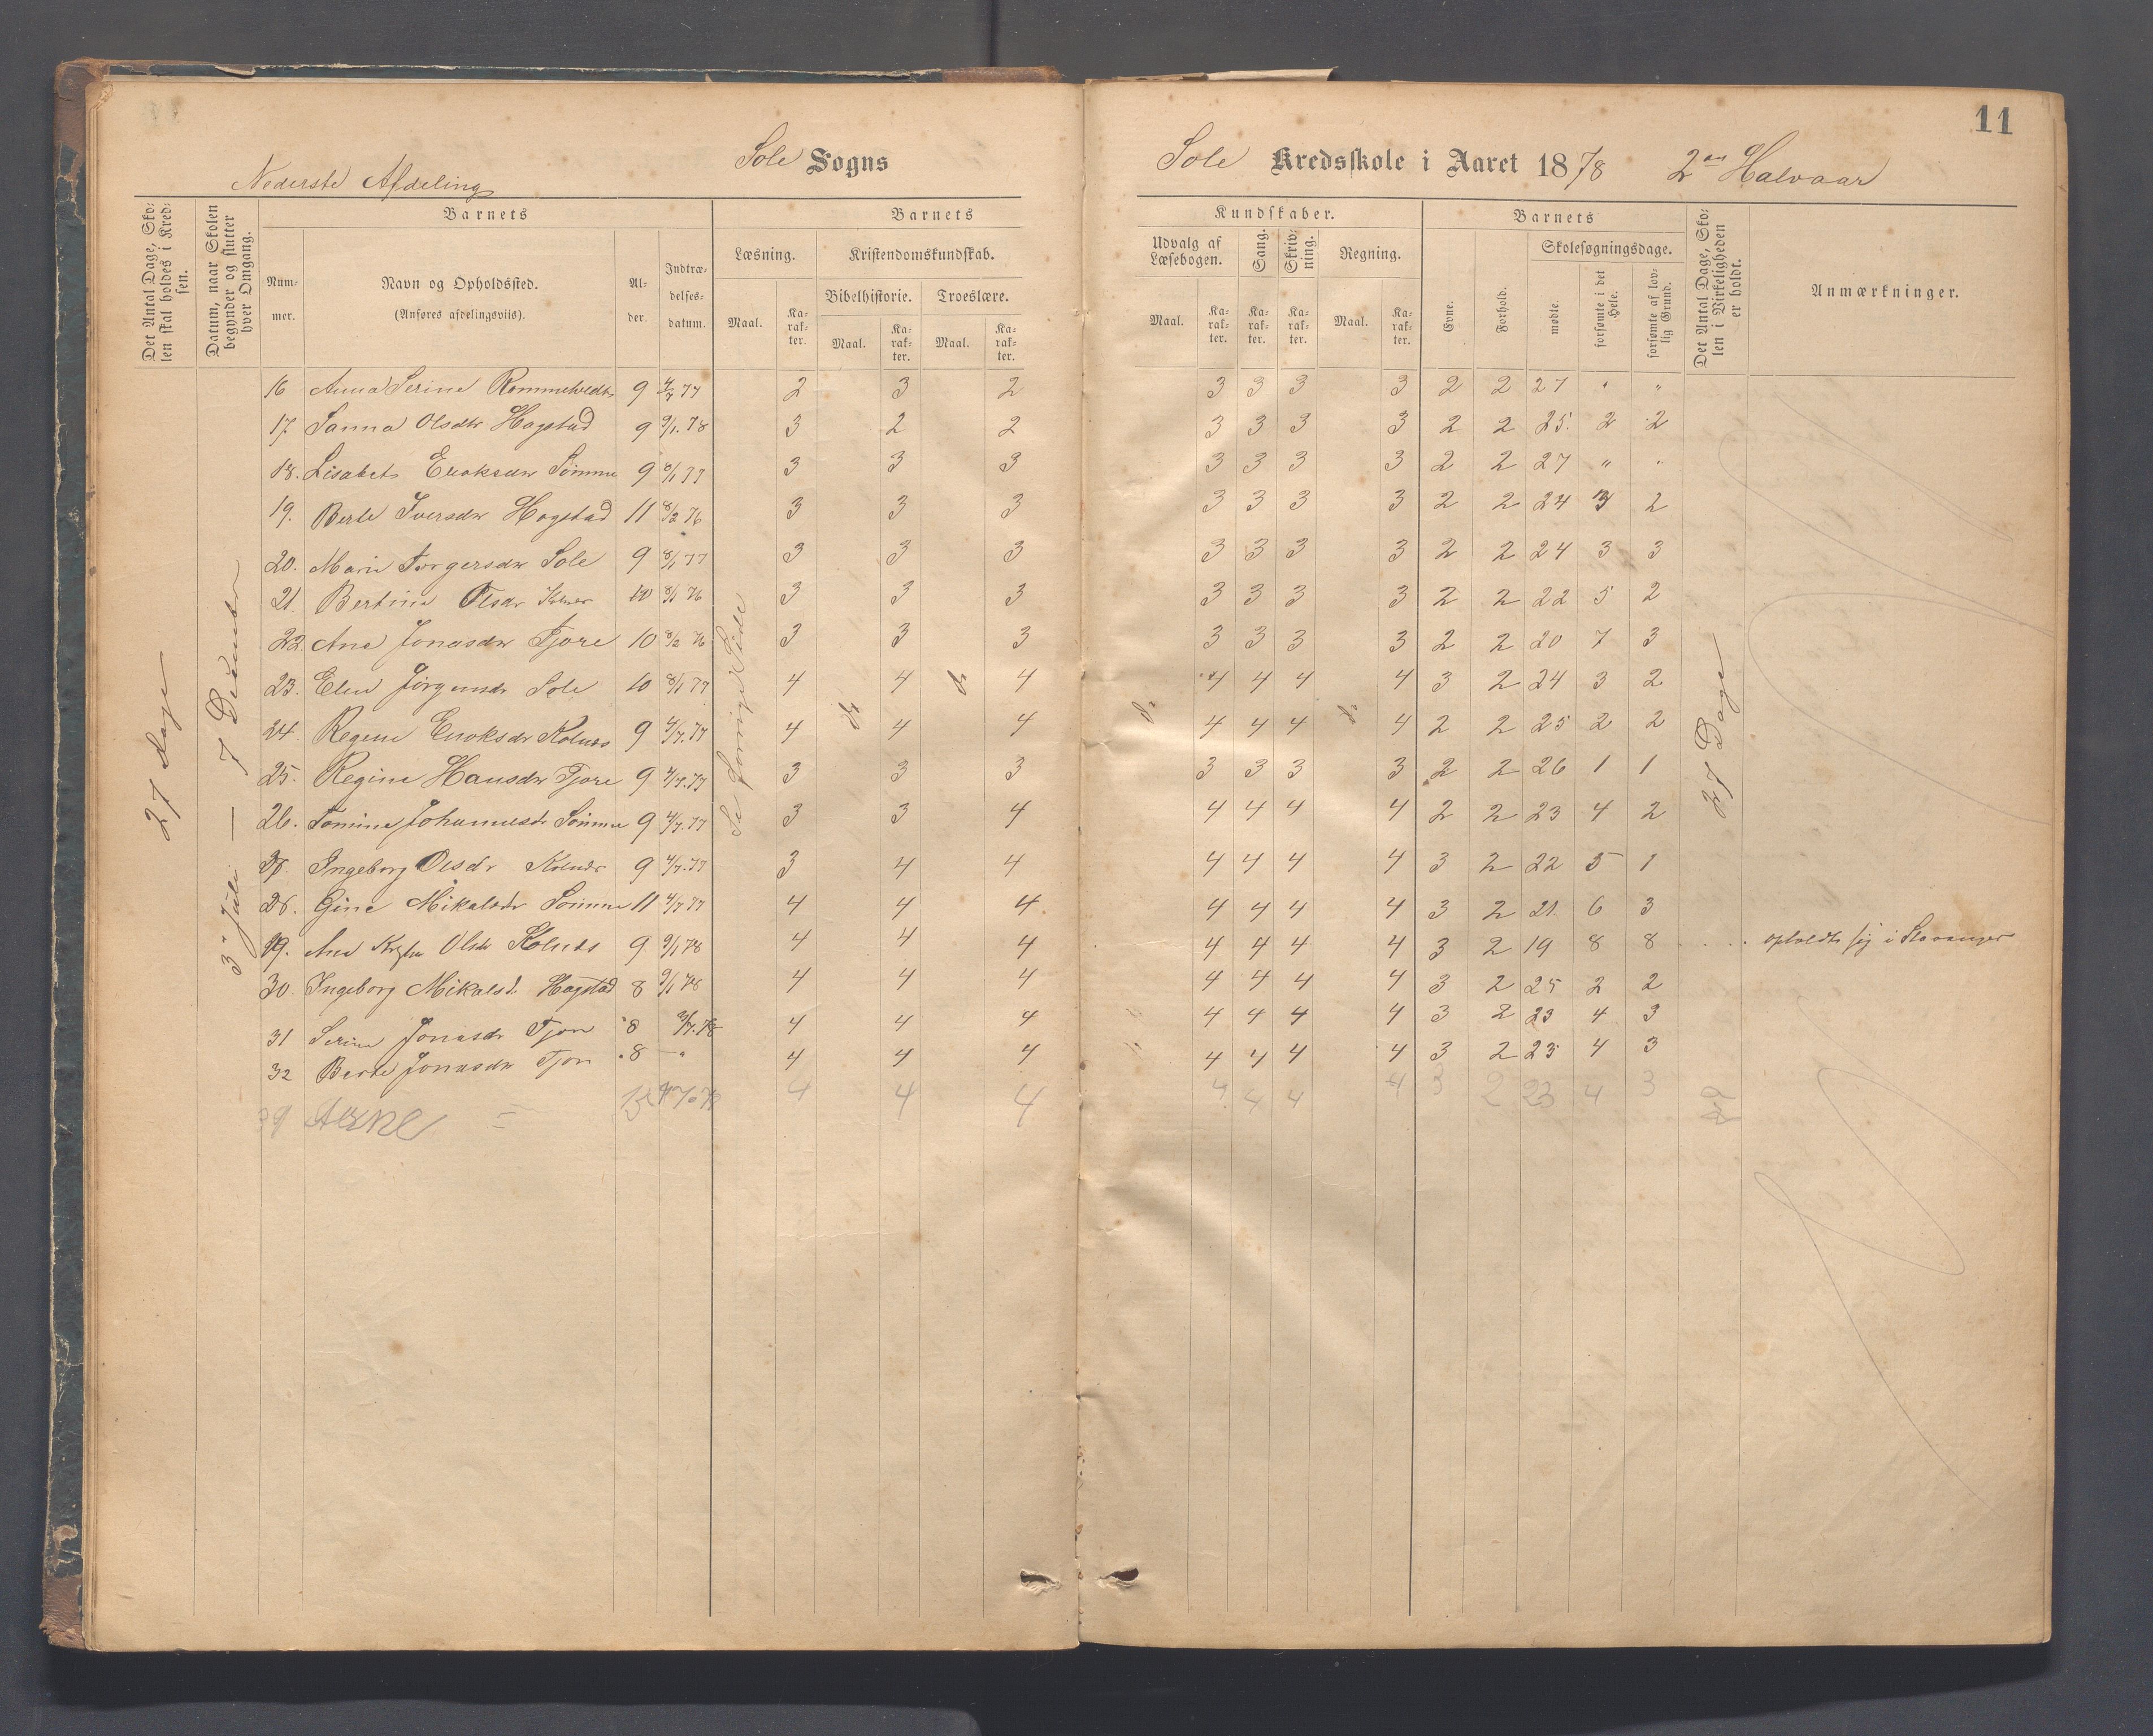 11
Sole Sogns
Sole Kredsskole i Aaret 1878 2den Halvaar
Nederste Afdeling
Det Antal Dage, Skolen skal holdes i Kredsen.
Datum, naar Skolen begynder og slutter hver Omgang.
Barnets
Nummer.
Navn og Opholdssted.
(Anføres afdelingsviis).
Alder.
Indtrædelsesdatum.
Barnets
Læsning.
Kristendomskundskab.
Bibelhistorie.
Troeslære.
Maal.
Karakter.
Maal.
Karakter.
Maal.
Karakter.
Kundskaber.
Udvalg af Læsebogen.
Sang.
Skrivning.
Regning.
Maal.
Karakter.
Karakter.
Karakter.
Maal.
Karakter.
Barnets
Evne.
Forhold.
Skolesøgningsdage.
mødte.
forsømte i det Hele.
forsømte af lovlig Grund.
Det Antal Dage, Skolen i Virkeligheden er holdt.
Anmærkninger.
27 Dage
3die Juli — 7 December
Se forrige Side
do do do do
27 Dage
16 Anna Serine 9 4/7 77 2 3 2 3 3 3 3 2 2 27 " "
17. Sanna Olsdtr Hogstad 9 9/1. 78 3 2 2 3 3 3 3 2 2 25. 2 2
18. Lisabet Sømme 9 8/1 77 3 3 3 3 3 3 3 2 2 27 " "
19. Berte Iversdtr Hogstad 11 8/2 76 3 3 3 3 3 3 3 2 2 24 3 2
20. Marie Torgersdtr Sole 9 8/1 77 3 3 3 3 3 3 3 2 2 24 3 3
21. Bertine Olsdr Kolnes 10 8/1 76 3 3 3 3 3 3 3 2 2 22 5 2
22. Ane Jonasdtr Tjore 10 8/2 76 3 3 3 3 3 3 3 2 2 20 7 3
23. Elen Sole 10 8/1 77 4 4 4 4 4 4 4 3 2 24 3 2
24. Regine Kolnes 9 4/7. 77 4 4 4 4 4 4 4 2 2 25 2 2
25. Regine Hansdtr Tjore 9 4/7. 77 3 3 3 3 3 3 3 2 2 26 1 1
26. Tomine Johannesdr Sømme 9 4/7. 77 3 3 4 4 4 4 4 2 2 23 4 2
27. Ingeborg Olsdr Kolnes 9 4/7. 77 3 4 4 4 4 4 4 3 2 22 5 1
28. Gine Mikalsdtr Sømme 11 4/7 77 4 4 4 4 4 4 4 3 2 21. 6 3
29. Ane Olsdr Kolnes 9 9/1 78 4 4 4 4 4 4 4 3 2 19 8 8 . . . . opholdt sig i Stavanger
30. Ingeborg Mikalsd. Hogstad 8 9/1 78 4 4 4 4 4 4 4 3 2 25 2 2
31 Serine Jonasdr Tjore 8 3/7. 78 4 4 4 4 4 4 4 3 2 23 4 3
32 Berte Jonasdtr Tjore 8 — " 4 4 4 4 4 4 4 3 2 23 4 3
4 4 4 4 4 4 4 3 2 23 4 3